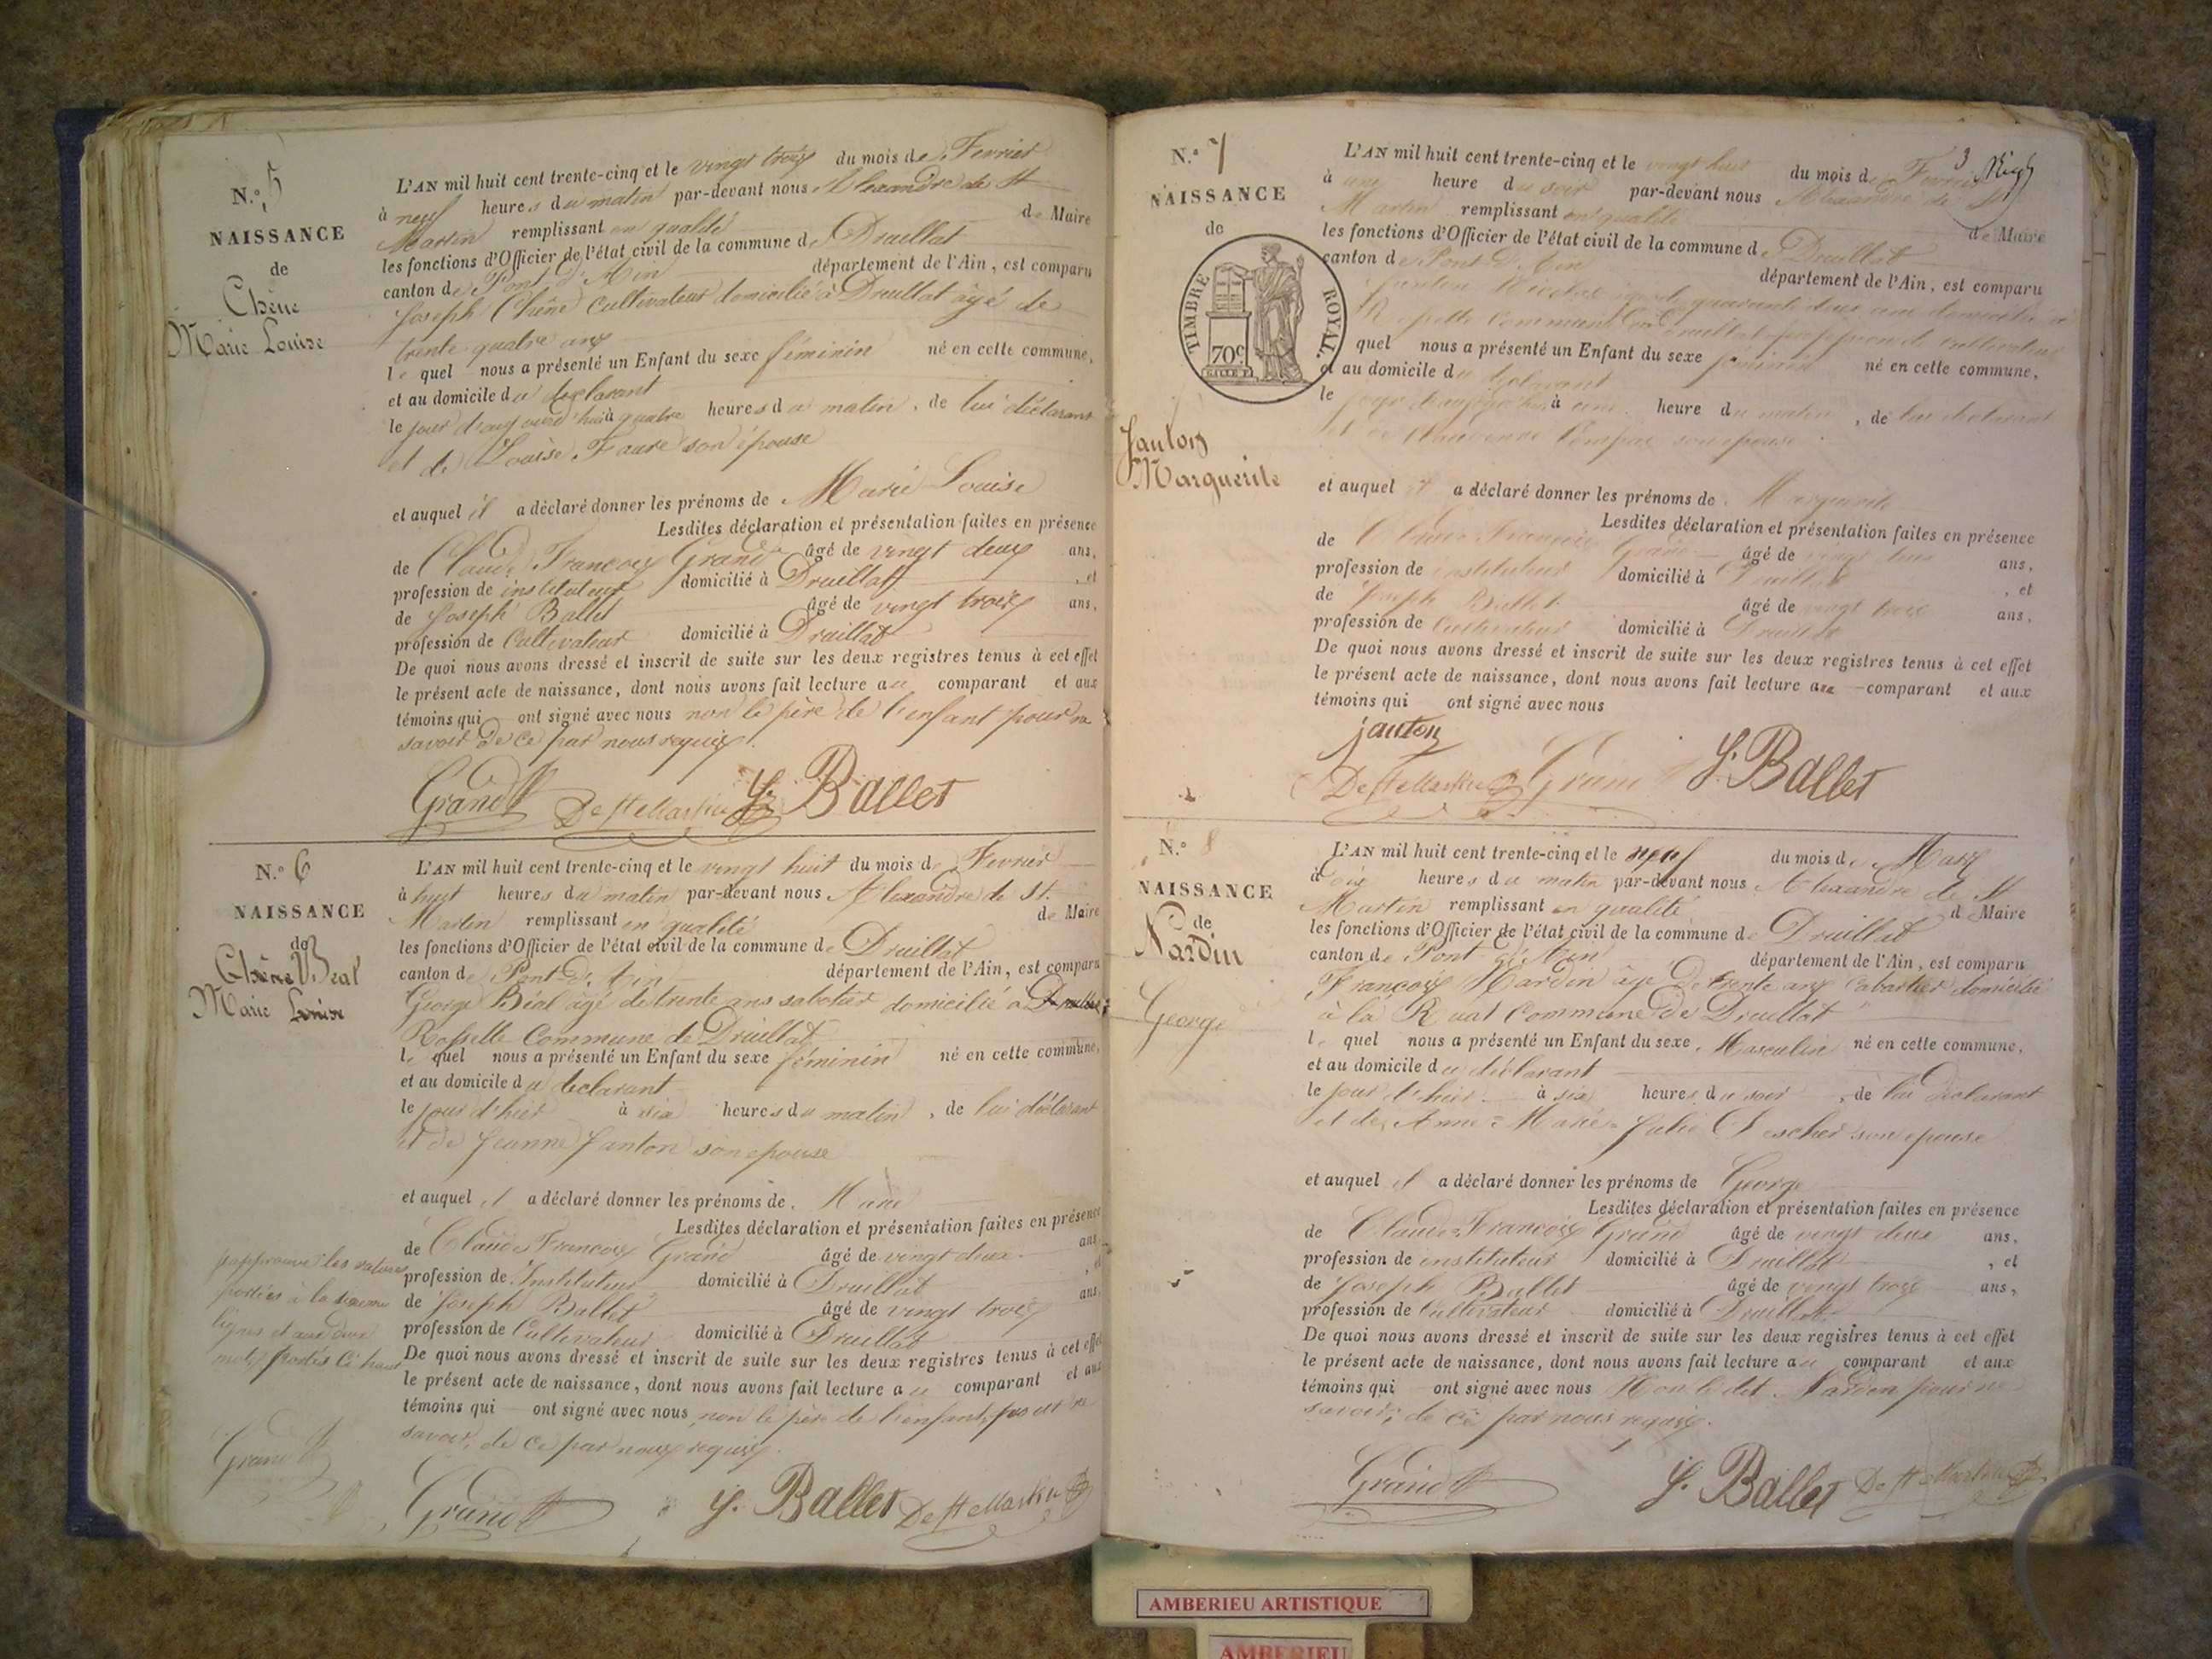 N.° 5
NAISSANCE
de
Chêne
Marie Louise
L'AN mil huit cent trente-cinq et le vingt trois du mois de Fevrier
à neuf heures du matin par-devant nous Alexandre de St
Martin remplissant en qualité de Maire
les fonctions d'Officier de l'état civil de la commune de Druillat
canton de Pont d'Ain département de l'Ain, est comparu
Joseph Chêne Cultivateur domicilié à Druillat âgé de
trente quatre ans
le quel nous a présenté un Enfant du sexe féminin né en cette commune,
et au domicile du declarant
le jour d'aujourd'hui à quatre heures du matin, de lui déclarant
et de Louise Faure son épouse
et auquel il a déclaré donner les prénoms de Marie Louise
Lesdites déclaration et présentation faites en présence
de Claude François Grand âgé de vingt deux ans,
profession de instituteur domicilié à Druillat, et
de Joseph Ballet âgé de vingt trois ans,
profession de Cultivateur domicilié à Druillat
De quoi nous avons dressé et inscrit de suite sur les deux registres tenus à cet effet
le présent acte de naissance, dont nous avons fait lecture au comparant et aux
témoins qui ont signé avec nous non le père de l'enfant pour ne
savoir de ce par nous requis.
Grand De St Martin J. Ballet
N.° 6
NAISSANCE
de
Chêne Béal
Marie Louise
L'AN mil huit cent trente-cinq et le vingt huit du mois de Fevrier
à huit heures du matin par-devant nous Alexandre de St.
Martin remplissant en qualité de Maire
les fonctions d'Officier de l'état civil de la commune de Druillat
canton de Pont d'Ain département de l'Ain, est comparu
George Béal âgé de trente ans sabotier domicilié à Druillat
Rossette Commune de Druillat
le quel nous a présenté un Enfant du sexe féminin né en cette commune,
et au domicile du declarant
le jour d'hier à six heures du matin, de lui déclarant
et de Jeanne Janton son epouse
et auquel il a déclaré donner les prénoms de Marie
Lesdites déclaration et présentation faites en présence
de Claude François Grand âgé de vingt deux ans
profession de Instituteur domicilié à Druillat, et
de Joseph Ballet âgé de vingt trois ans
profession de Cultivateur domicilié à Druillat
De quoi nous avons dressé et inscrit de suite sur les deux registres tenus à cet effet
le présent acte de naissance, dont nous avons fait lecture au comparant et aux
témoins qui ont signé avec nous non le père de l'enfant pour ne
savoir, de ce par nous requis.
j'approuve les ratures
portées à la
lignes et aux deux
mots portés ci haut
Grand
Grand J. Ballet De St Martin
3
N.° 7
NAISSANCE
de
TIMBRE ROYAL.
70c
Janton
Marguerite
L'AN mil huit cent trente-cinq et le vingt huit du mois de Fevrier
à une heure du soir par-devant nous Alexandre de St
Martin remplissant en qualité de Maire
les fonctions d'Officier de l'état civil de la commune de Druillat
canton de Pont d'Ain département de l'Ain, est comparu
Janton âgé de quarante deux ans domicilié à
Rossette Commune de Druillat profession de cultivateur
quel nous a présenté un Enfant du sexe féminin né en cette commune,
et au domicile du declarant
le jour d'aujourd'hui à une heure du matin, de lui declarant
et de son epouse
et auquel il a déclaré donner les prénoms de Marguerite
Lesdites déclaration et présentation faites en présence
de Claude François Grand âgé de vingt deux ans,
profession de instituteur domicilié à Druillat, et
de Joseph Ballet âgé de vingt trois ans,
profession de Cultivateur domicilié à Druillat
De quoi nous avons dressé et inscrit de suite sur les deux registres tenus à cet effet
le présent acte de naissance, dont nous avons fait lecture aux comparant et aux
témoins qui ont signé avec nous
janton
De St Martin Grand J. Ballet
N.° 8
NAISSANCE
de
Nardin
George
L'AN mil huit cent trente-cinq et le neuf du mois de Mars
à six heures du matin par-devant nous Alexandre de St
Martin remplissant en qualité de Maire
les fonctions d'Officier de l'état civil de la commune de Druillat
canton de Pont d'Ain département de l'Ain, est comparu
François Nardin âgé de trente ans Cabartier domicilié
à la Ruat Commune de Druillat
l quel nous a présenté un Enfant du sexe Masculin né en cette commune,
et au domicile du déclarant
le jour d'hier à six heures du soir, de lui declarant
et de Anne=Marie=Julie son epouse
et auquel il a déclaré donner les prénoms de George
Lesdites déclaration et présentation faites en présence
de Claude=François Grand âgé de vingt deux ans,
profession de instituteur domicilié à Druillat, et
de Joseph Ballet âgé de vingt trois ans,
profession de Cultivateur domicilié à Druillat
De quoi nous avons dressé et inscrit de suite sur les deux registres tenus à cet effet
le présent acte de naissance, dont nous avons fait lecture au comparant et aux
témoins qui ont signé avec nous Non le dit Nardin pour ne
savoir, de ce par nous requis.
Grand J. Ballet De St Martin
AMBERIEU ARTISTIQUE
AMBERIEU